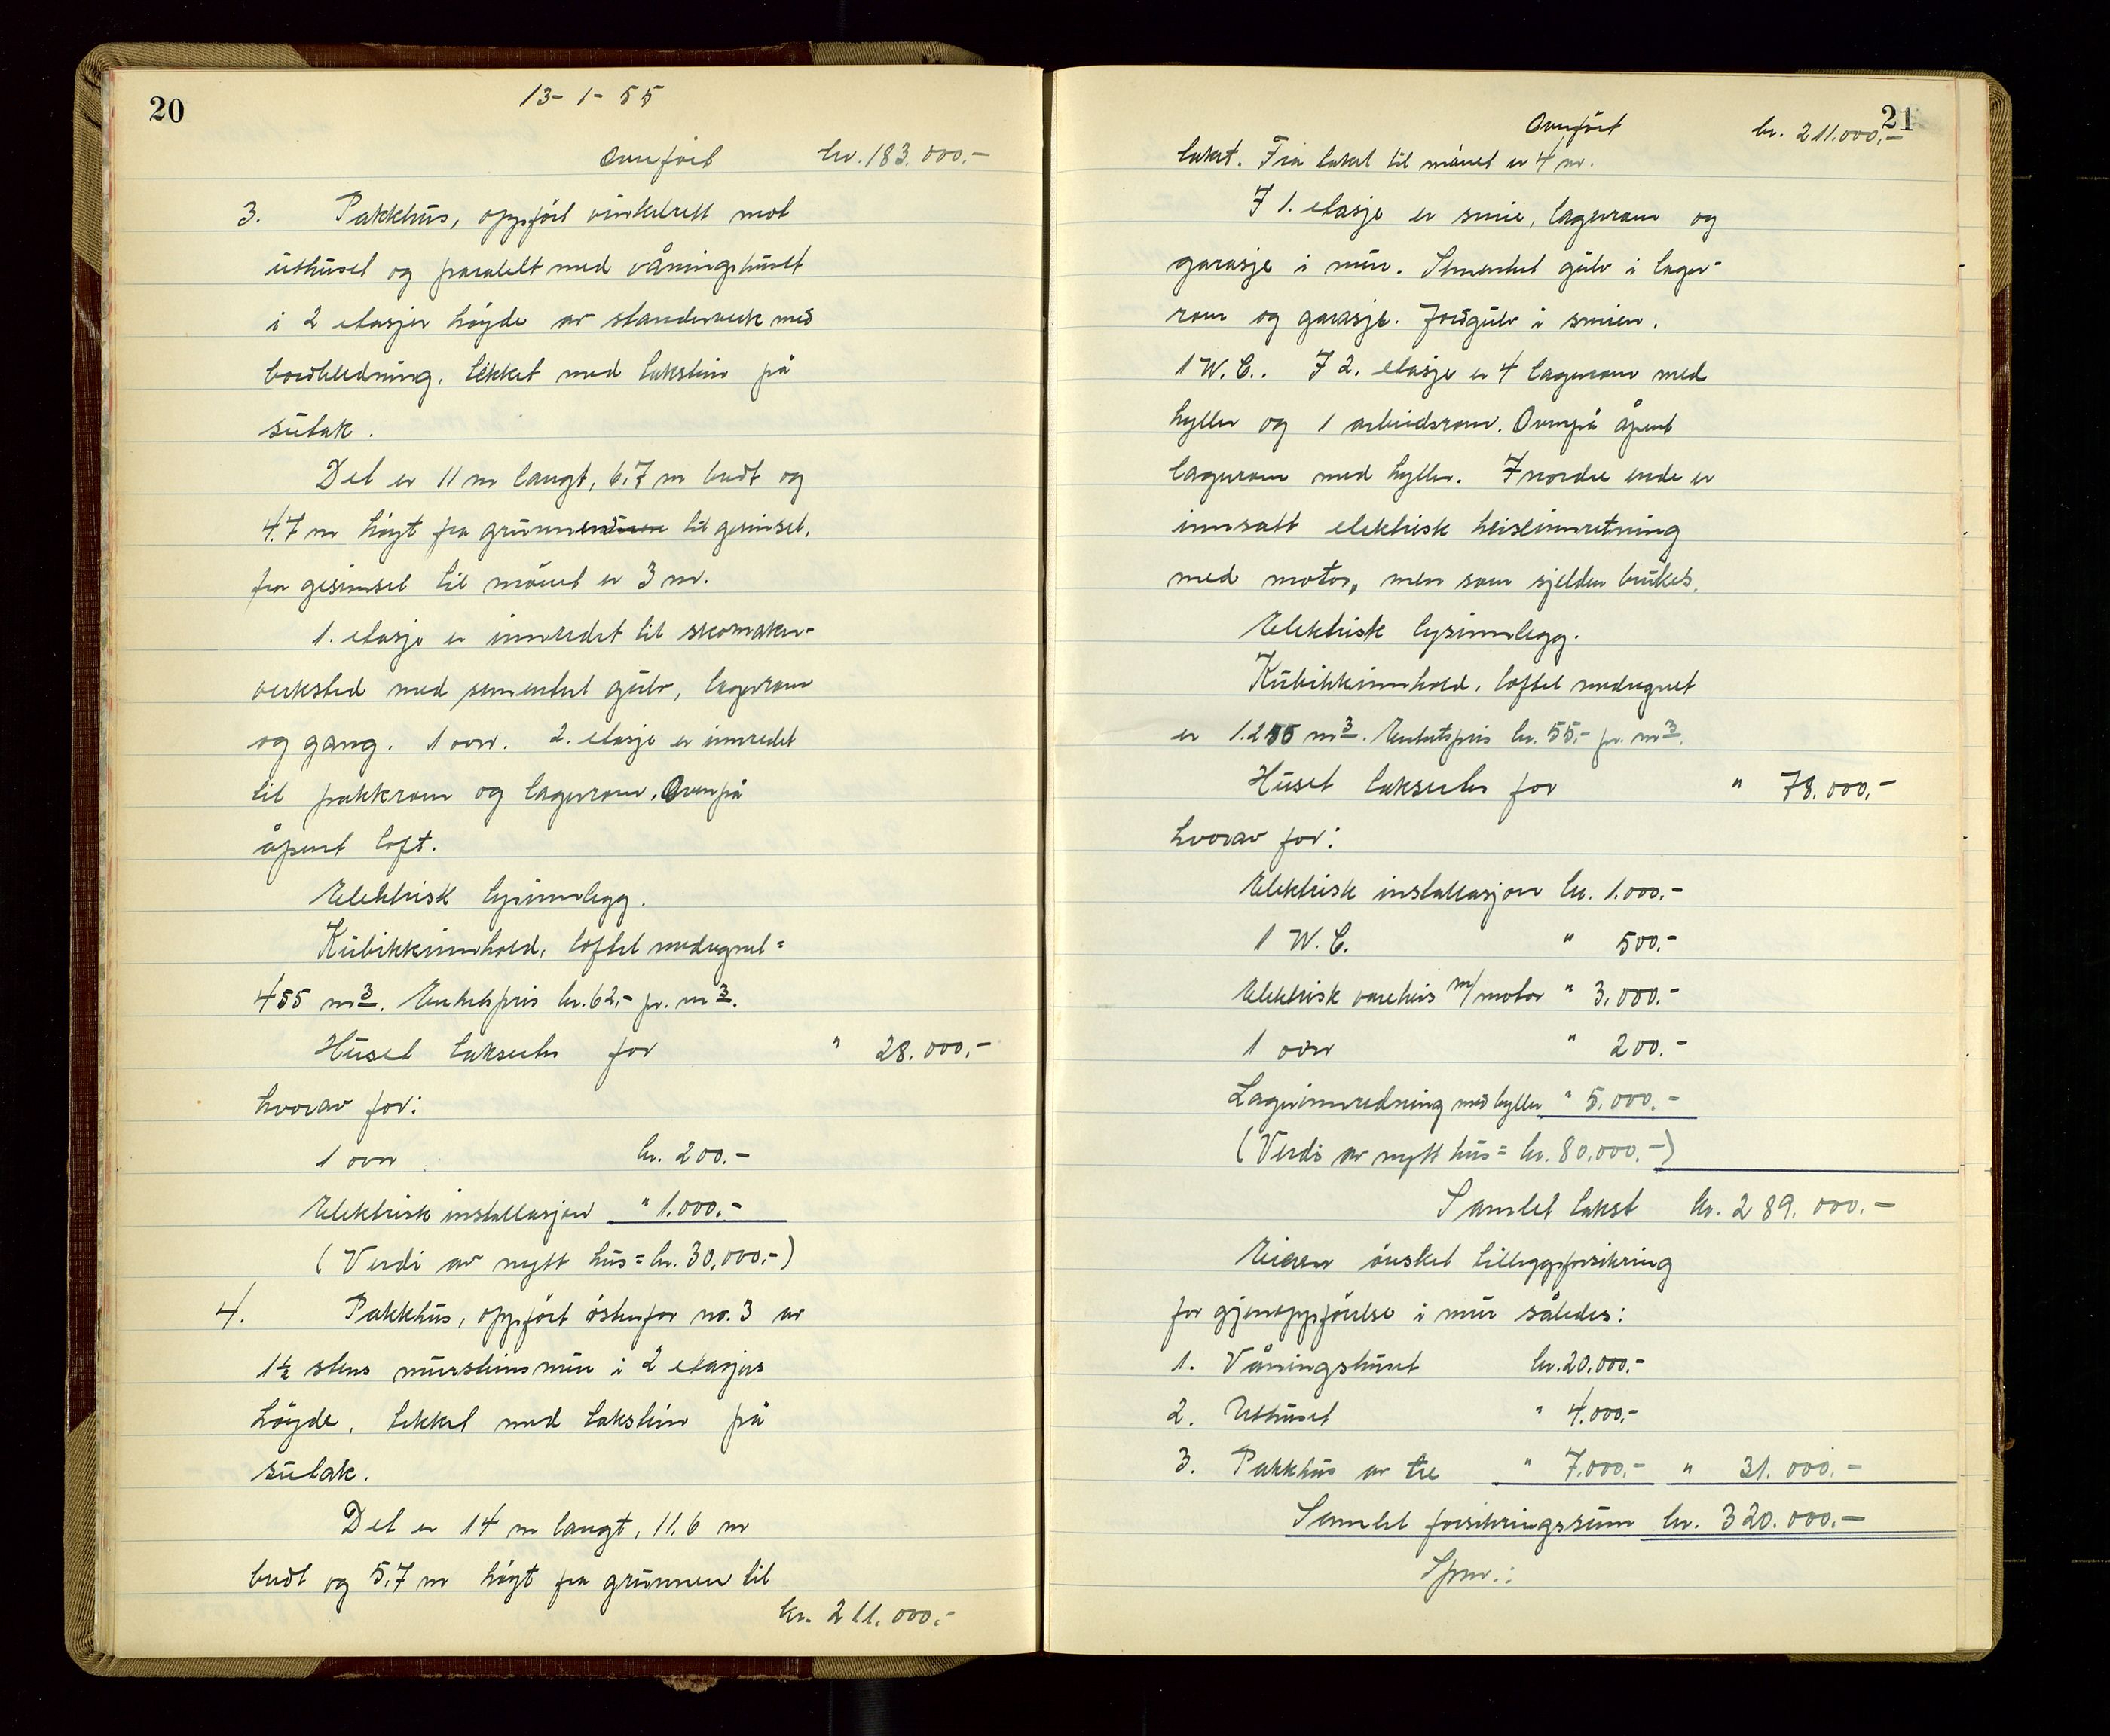 20
13-1-55
Overført kr. 183.000.-
3. Pakkhus, oppført vinkelrett mot
uthuset og paralelt med våningshuset
i 2 etasjer høyde av standerverk med
bordkledning, tekket med takstein på
sutak.
Det er 11 m langt, 6.7 m bredt og
4.7 m høyt fra grunnen til gesimset,
fra gesimset til mønet er 3 m.
1. etasje er innredet til skomaker-
verksted med sementert gulv, lagerrom
og gang. 1 ovn. 2. etasje er innredet
til pakkrom og lagerrom. Ovenpå
åpent loft.
Elektrisk lysinnlegg.
Kubikkinnhold, loftet medregnet =
455 m3. Enhetspris kr. 62,- pr. m3.
Huset takseres for " 28.000.-
hvorav for:
1 ovn kr. 200.-
Elektrisk installasjon " 1.000.-
(Verdi av nytt hus = kr. 30,000.-)
4. Pakkhus, oppført østenfor no. 3 av
1½ stens murstensmur i 2 etasjers
høyde, tekket med takstein på
sutak.
Det er 14 m langt, 11,6 m
bredt og 5,7 m høyt fra grunnen til
kr. 211.000.-
21
Overført kr. 211.000,-
taket. Fra taket til mønet er 4 m.
I 1. etasje er smie, lagerrom og
garasje i mur. Sementert gulv i lager-
rom og garasje. Jordgulv i smien.
1 W.C.. I 2. etasje er 4 lagerrom med
hyller og 1 arbeidsrom. Ovenpå åpent
lagerrom med hyller. I nordre ende er
innsatt elektrisk heiseinnretning
med motor, men som sjelden brukes.
Elektrisk lysinnlegg.
Kubikkinnhold, loftet medregnet
er 1.255 m3. Enhetspris kr. 55.- pr. m3.
Huset takseres for " 78.000,-
hvorav for:
Elektrisk installasjon kr. 1.000.-
1 W.C. " 500.-
Elektrisk vareheis m/motor " 3,000.-
1 ovn " 200.-
Lagerinnredning med hyller " 5.000.-
(Verdi av nytt hus = kr. 80.000.-)
Samlet takst kr. 289.000.-
Eieren ønsket tilleggsforsikring
for gjenoppførelse i mur således:
1. Våningshuset kr. 20.000.-
2. Uthuset " 4.000.-
3. Pakkhus av tre " 7.000.- " 31.000.-
Samlet forsikringssum kr. 320.000.-
Spm.: